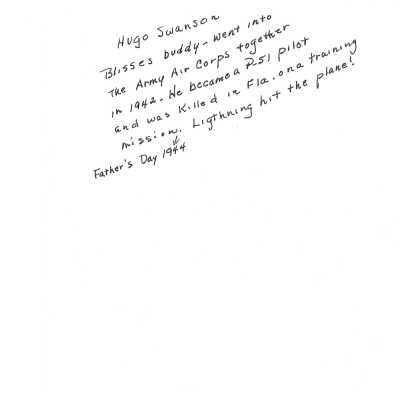 Hugo Swanson
Blisses buddy - went into
the Army Air Corps together
in 1942. He became a P.51 pilot
and was killed in Fla. on a training
mission. Ligthning hit the plane!
Father's Day 1944